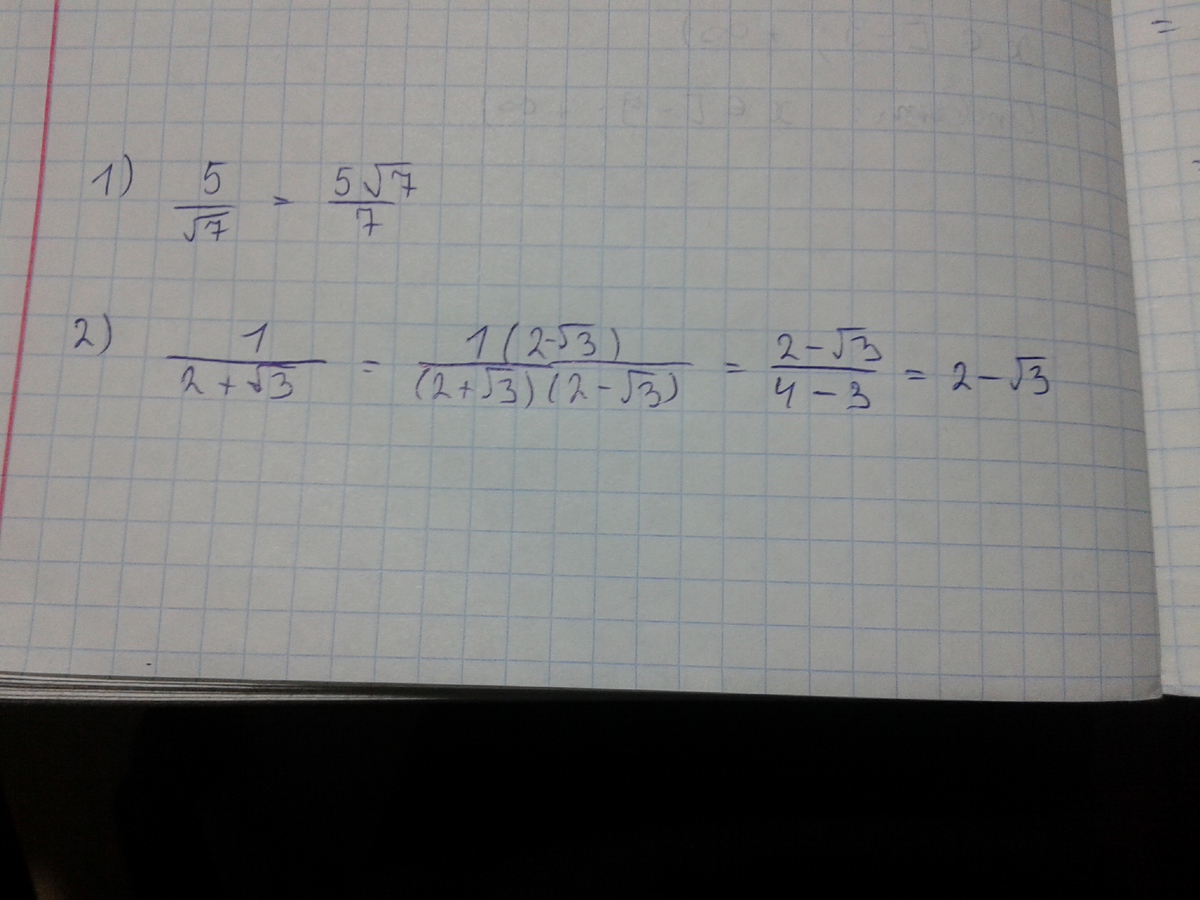 1) 5/√7 = 5√7/7
2) 1/(2+√3) = 1(2-√3)/((2+√3)(2-√3)) = (2-√3)/(4-3) = 2-√3